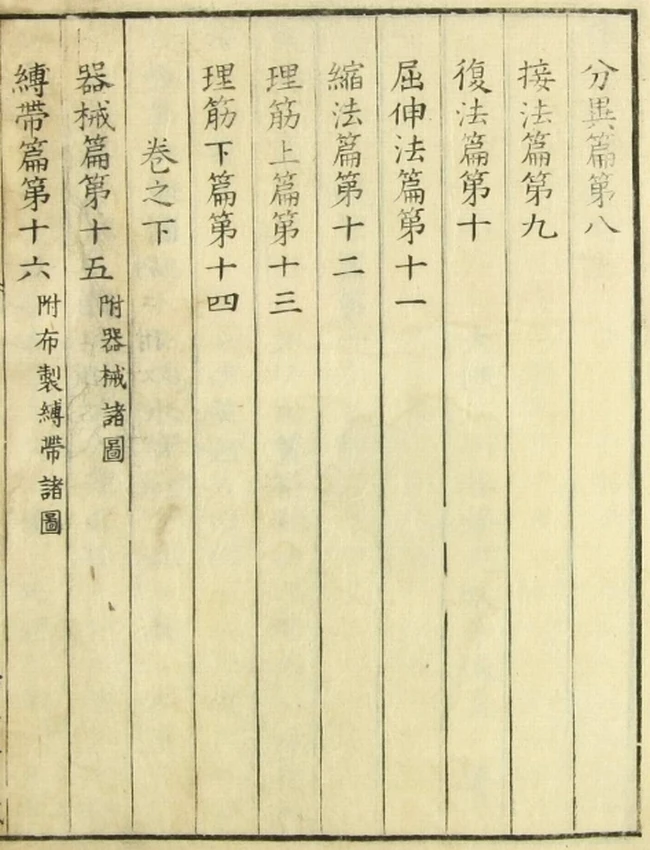 分異篇第八
接法篇第九
復法篇第十
屈伸法篇第十一
縮法篇第十二
理筋上篇第十三
理筋下篇第十四
卷之下
器械篇第十五 附器械諸圖
縛帶篇第十六 附布製縛帶諸圖